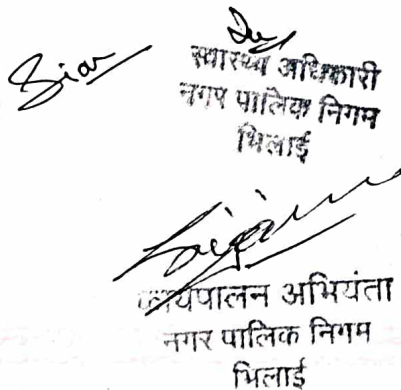 स्वास्थ्य अधिकारी
नगर पालिक निगम
भिलाई
कार्यपालन अभियंता
नगर पालिक निगम
भिलाई